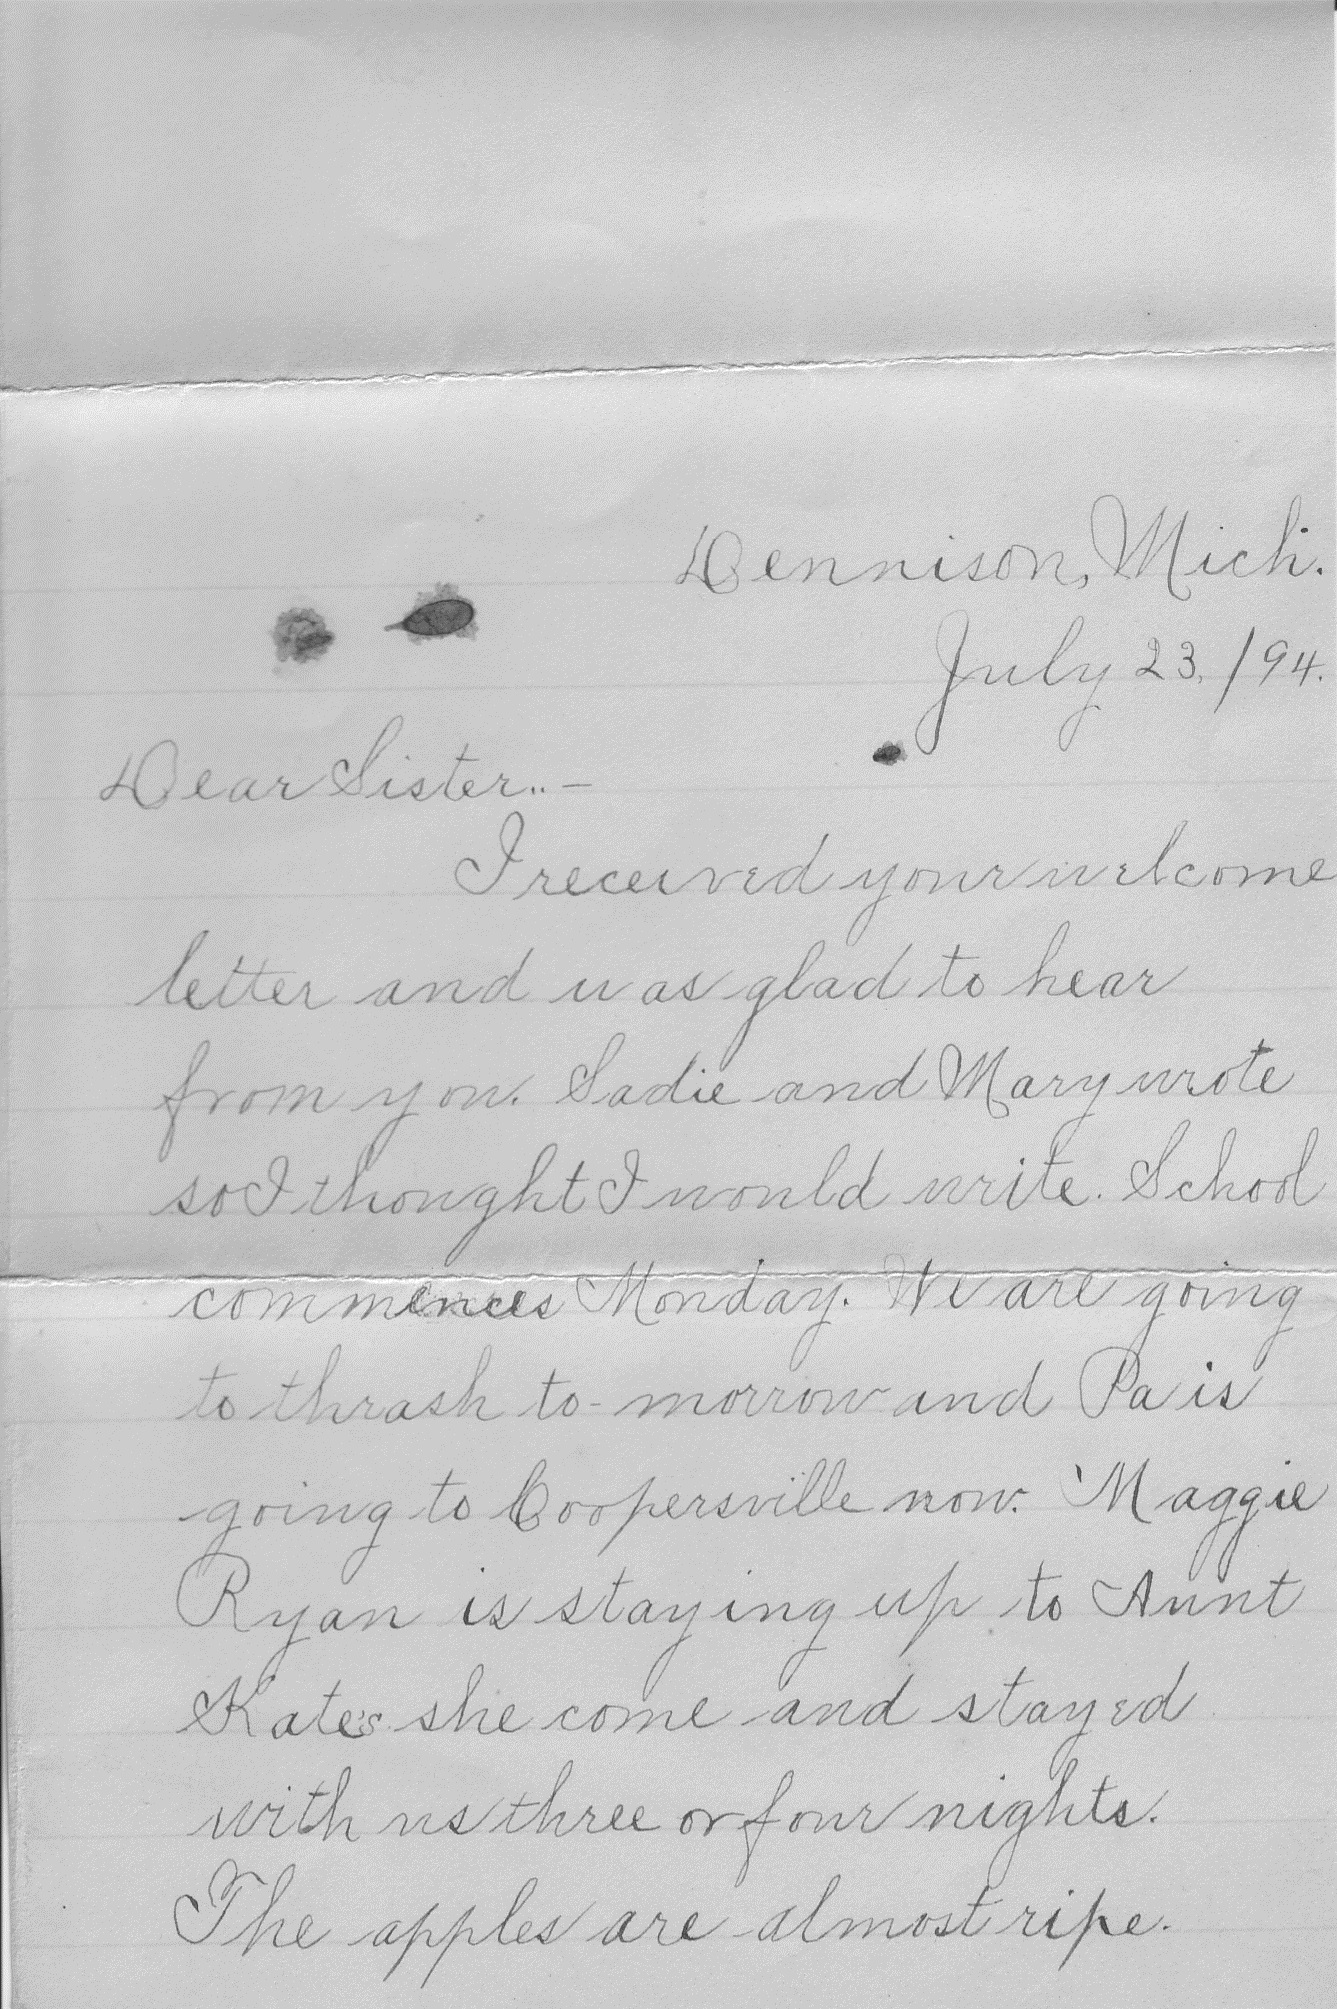 Dennison, Mich.
July 23, /94.
Dear Sister..—
I received your welcome
letter and was glad to hear
from you. Sadie and Mary wrote
so I thought I would write. School
commences Monday. We are going
to thrash to-morrow and Pa is
going to Coopersville now. Maggie
Ryan is staying up to Aunt
Kate's she come and stayed
with us three or four nights.
The apples are almost ripe.